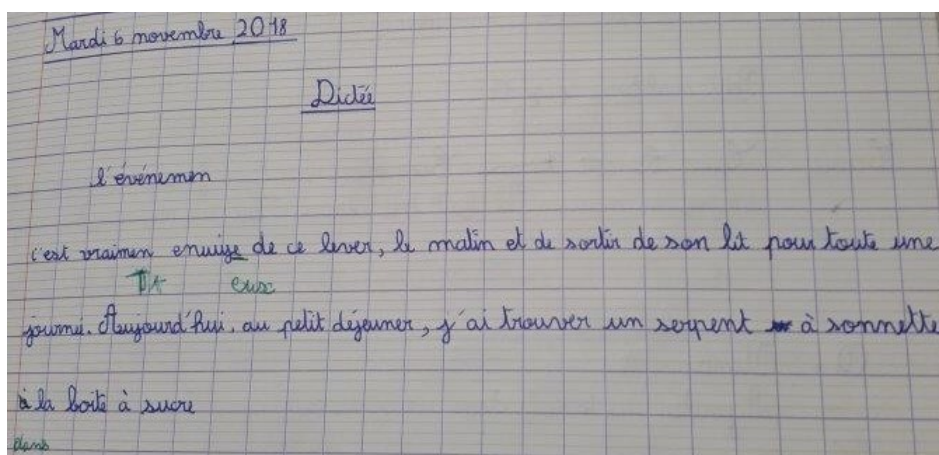 Mardi 6 novembre 2018
Dictée
l'événemen
c'est vraimen enuige de ce lever, le matin et de sortir de son lit pour toute une
TA eux
journé. Aujourd'hui, au petit déjeuner, j'ai trouver un serpent à sonnette
à la boite à sucre
dans